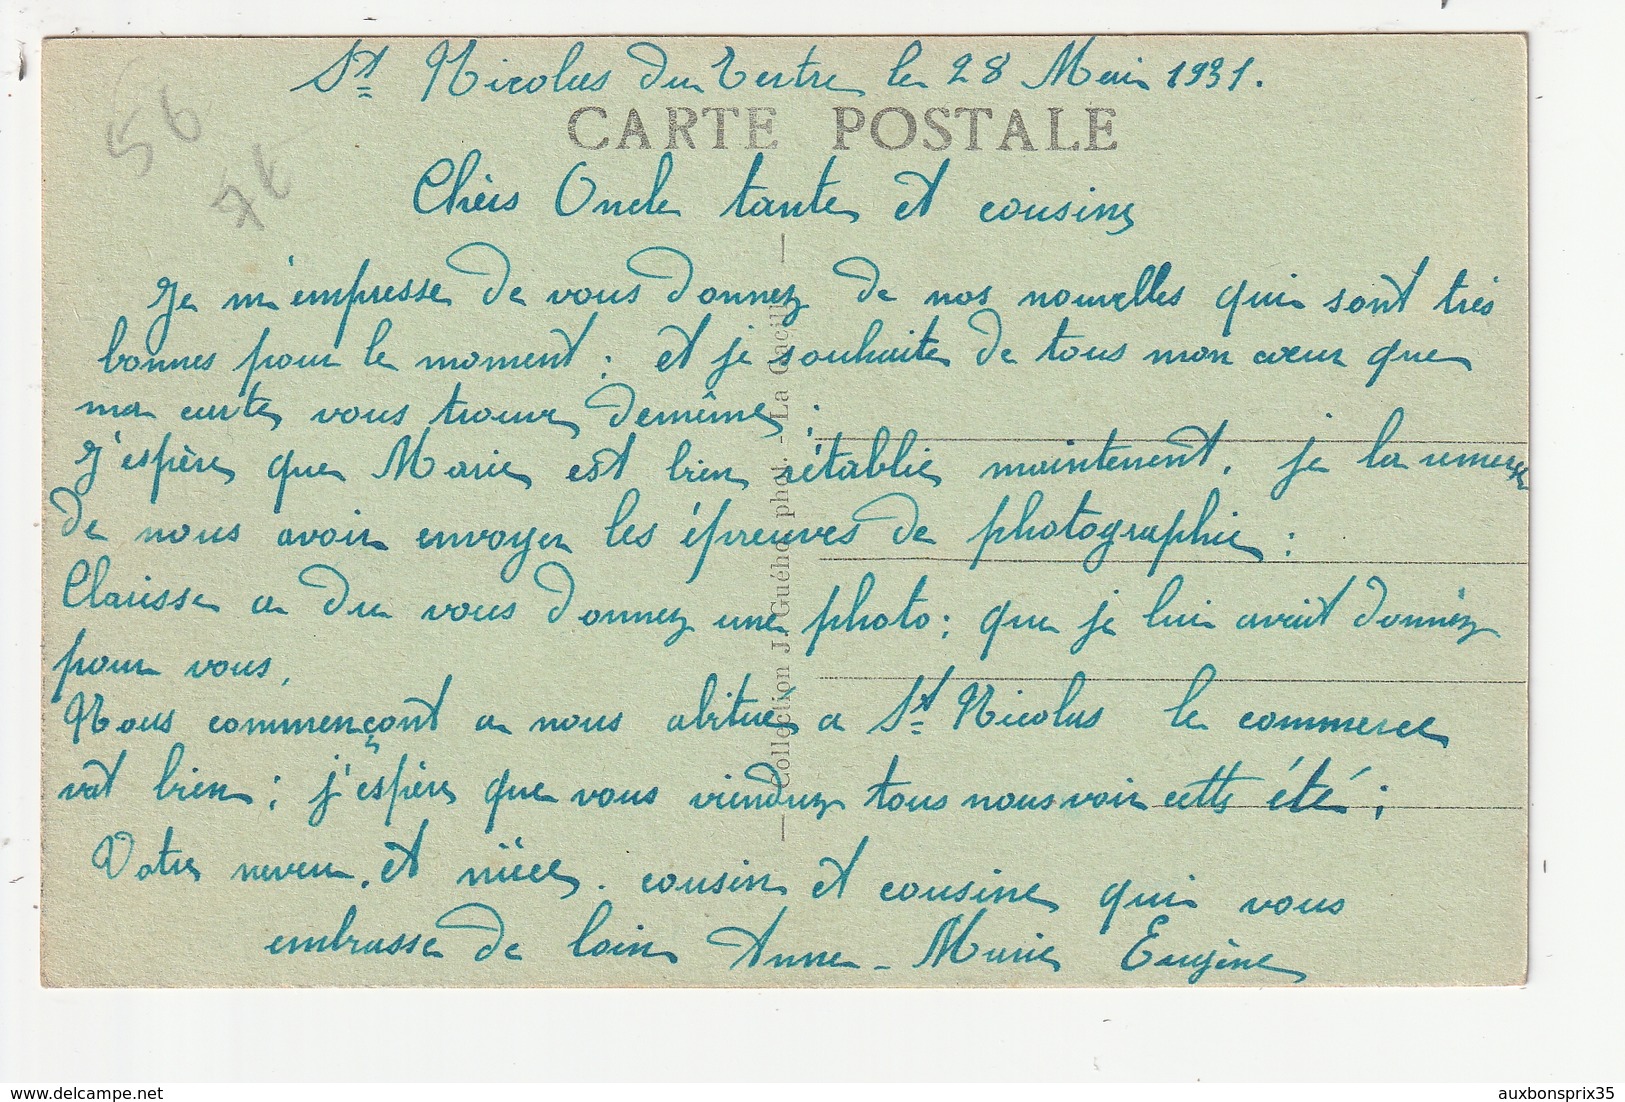 St Nicolas du Tertre le 28 Mai 1931.
56
CARTE POSTALE
Chèrs Oncle tante et cousins
Je m'empresse de vous donnez de nos nouvelles qui sont très
bonnes pour le moment ; et je souhaite de tous mon cœur que
ma carte vous trouve demême ;
J'espère que Marie est bien rétablie maintenent. je la remercie
de nous avoir envoyer les épreuves de photographie ;
Clarisse a du vous donnez une photo ; que je lui avait donnéz
pour vous.
Nous commençont a nous abitué a St Nicolas le commerce
vat bien ; j'espère que vous viendrez tous nous voir cette été ;
Votre neveu. et nièce. cousin et cousine qui vous
embrasse de loin Anne-Marie Eugène
Collection J. Guého, phot. - La Gacilly
auxbonsprix35